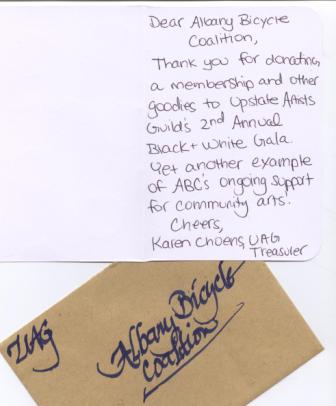 Dear Albany Bicycle
Coalition,
Thank you for donating
a membership and other
goodies to Upstate Artists
Guild's 2nd Annual
Black + White Gala.
Yet another example
of ABC's ongoing support
for community arts.
Cheers,
Karen Choens, UAG
Treasurer
UAG
Albany Bicycle
Coalition